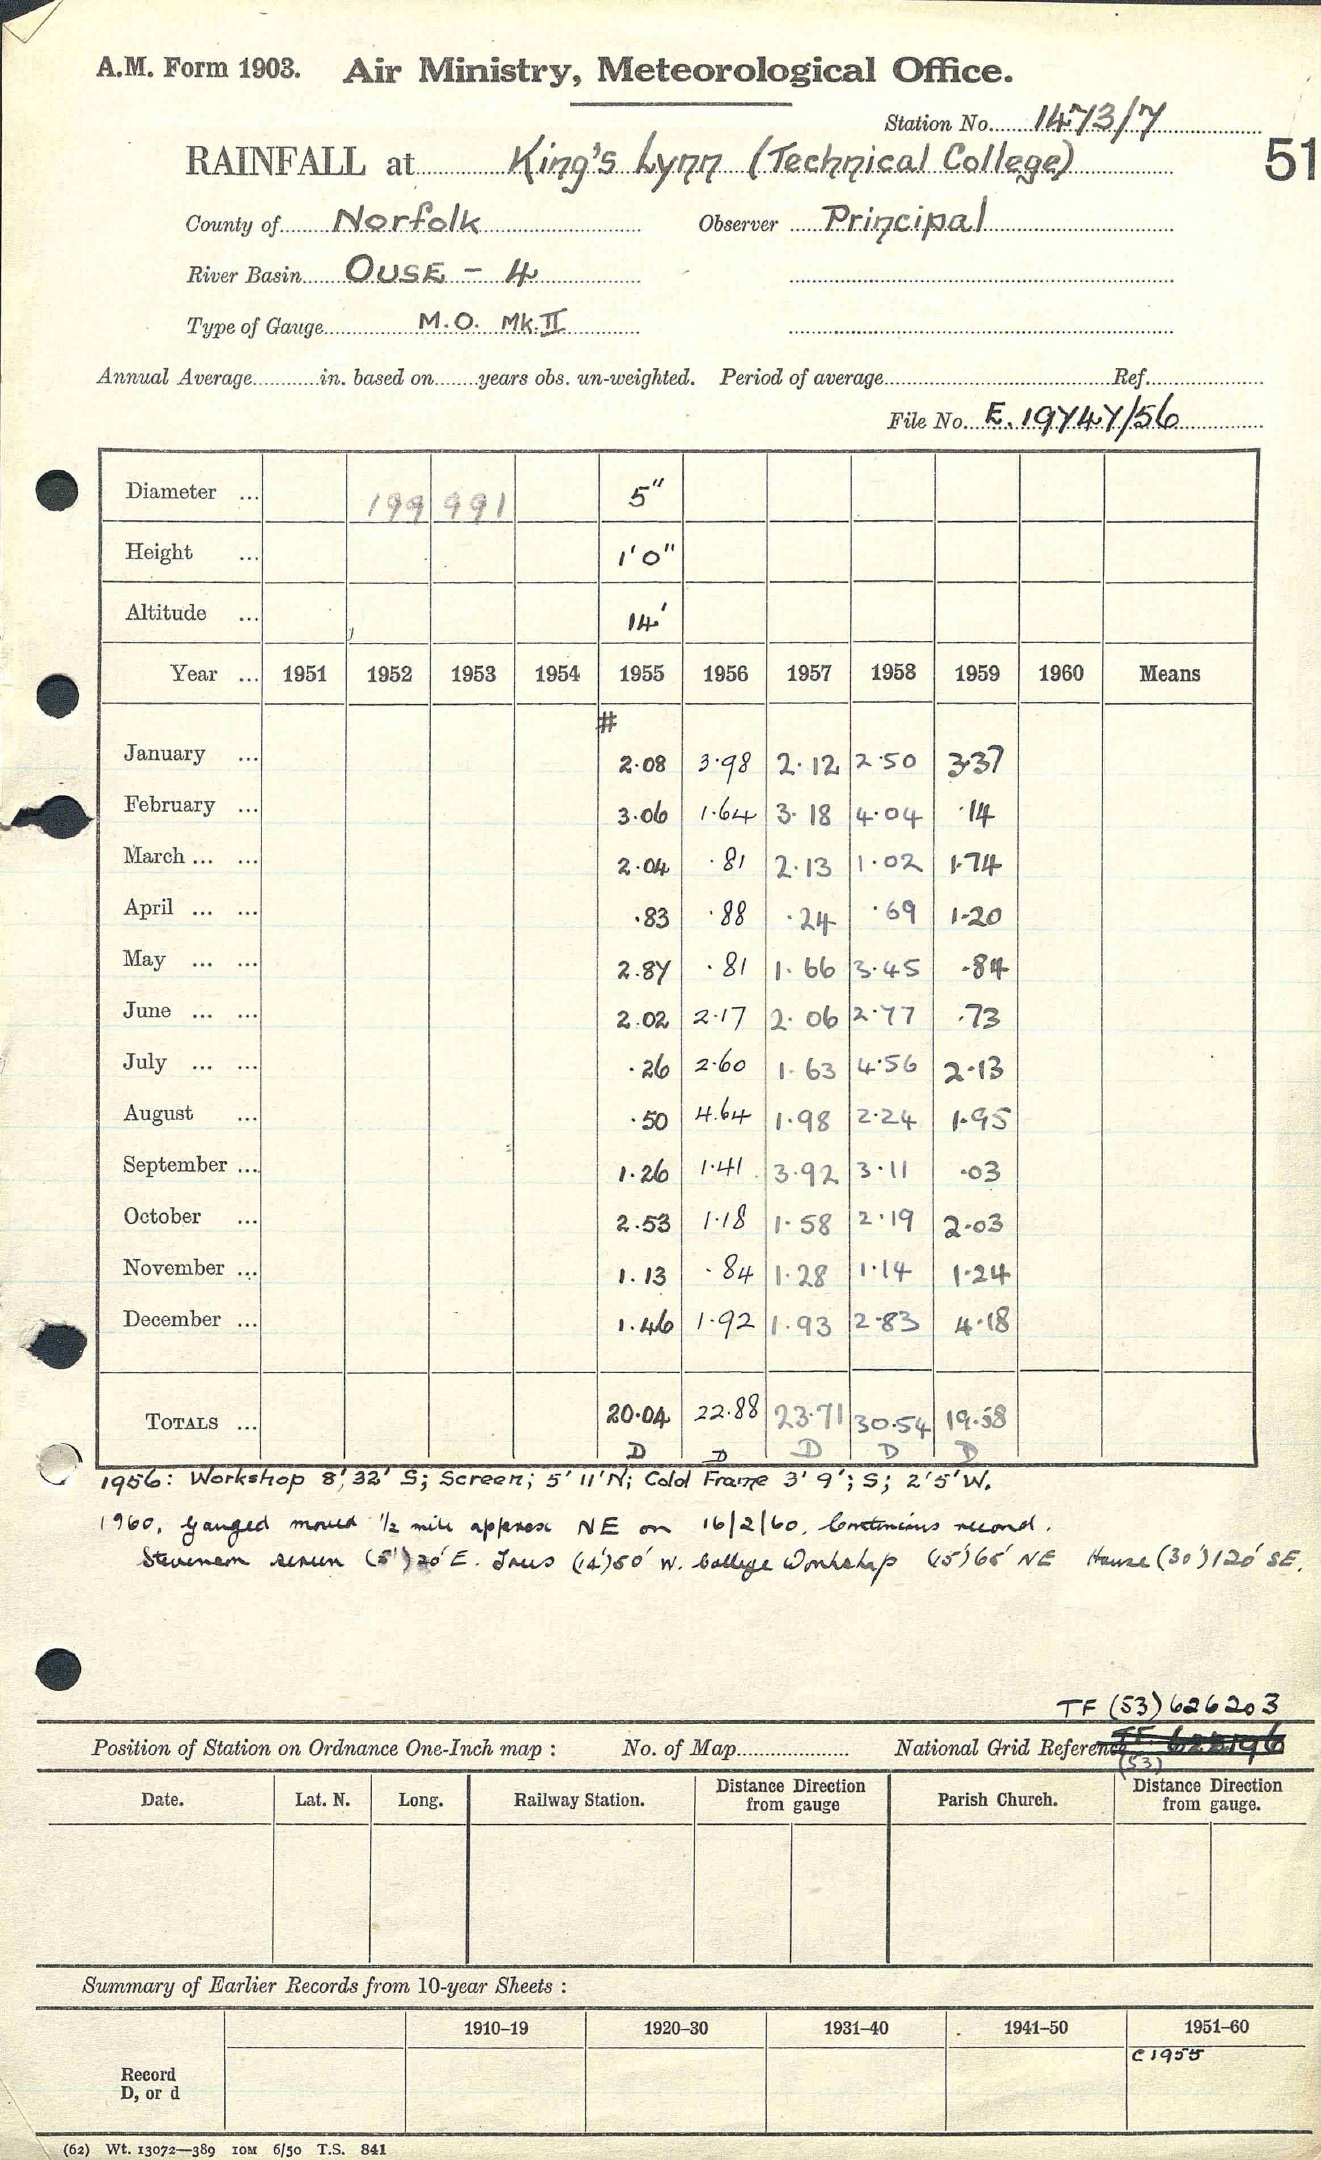 A.M. Form 1903. Air Ministry, Meteorological Office.
Station No. 1473/7
51
RAINFALL at King's Lynn (Technical College)
County of Norfolk Observer Principal
River Basin OUSE - 4
Type of Gauge M.O. Mk.II
Annual Average in. based on years obs. un-weighted. Period of average Ref.
File No. E.19747/56
Diameter ... 199 991 5"
Height ... 1'0"
Altitude ... 14'
Year ... 1951 1952 1953 1954 1955 1956 1957 1958 1959 1960 Means
#
January ... 2.08 3.98 2.12 2.50 3.37
February ... 3.06 1.64 3.18 4.04 .14
March ... ... 2.04 .81 2.13 1.02 1.74
April ... ... .83 .88 .24 .69 1.20
May ... ... 2.87 .81 1.66 3.45 .84
June ... ... 2.02 2.17 2.06 2.77 .73
July ... ... .26 2.60 1.63 4.56 2.13
August ... .50 4.64 1.98 2.24 1.95
September ... 1.26 1.41 3.92 3.11 .03
October ... 2.53 1.18 1.58 2.19 2.03
November ... 1.13 .84 1.28 1.14 1.24
December ... 1.46 1.92 1.93 2.83 4.18
TOTALS ... 20.04 22.88 23.71 30.54 19.58
D D D D D
1956: Workshop 8', 32' S; Screen; 5' 11'N; Cold Frame 3' 9'; S; 2'5'W.
1960. Gauged moved 1/2 mile approx NE on 16/2/60. Continuous record.
Stevenson screen (5')20'E. Trees (14')50' W. College Workshop (15')65' NE House (30')120' SE.
TF (53) 626203
Position of Station on Ordnance One-Inch map : No. of Map National Grid Reference TF 625196
(53)
Date. Lat. N. Long. Railway Station. Distance from gauge Direction Parish Church. Distance from gauge. Direction
Summary of Earlier Records from 10-year Sheets :
1910–19 1920–30 1931–40 1941–50 1951–60
C1955
Record
D, or d
(62) Wt. 13072—389 10M 6/50 T.S. 841